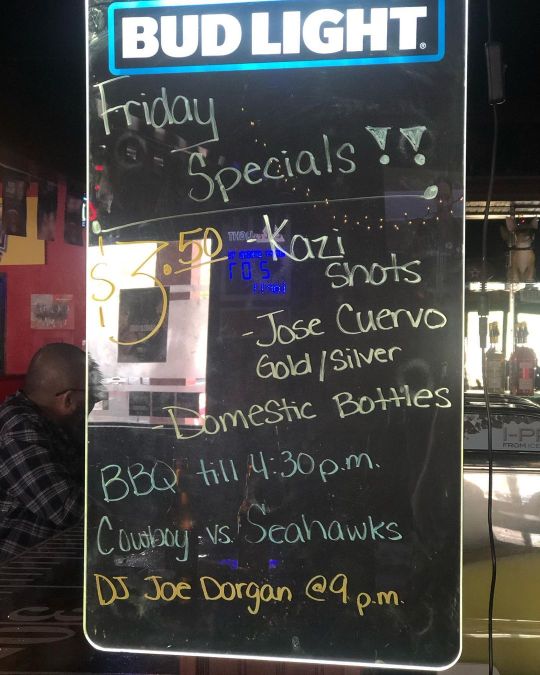 BUD LIGHT
Friday
Specials!!
$3.50 - Kazi
shots
- Jose Cuervo
Gold/Silver
- Domestic Bottles
BBQ till 4:30p.m.
Cowboy vs. Seahawks
DJ Joe Dorgan @9 p.m.